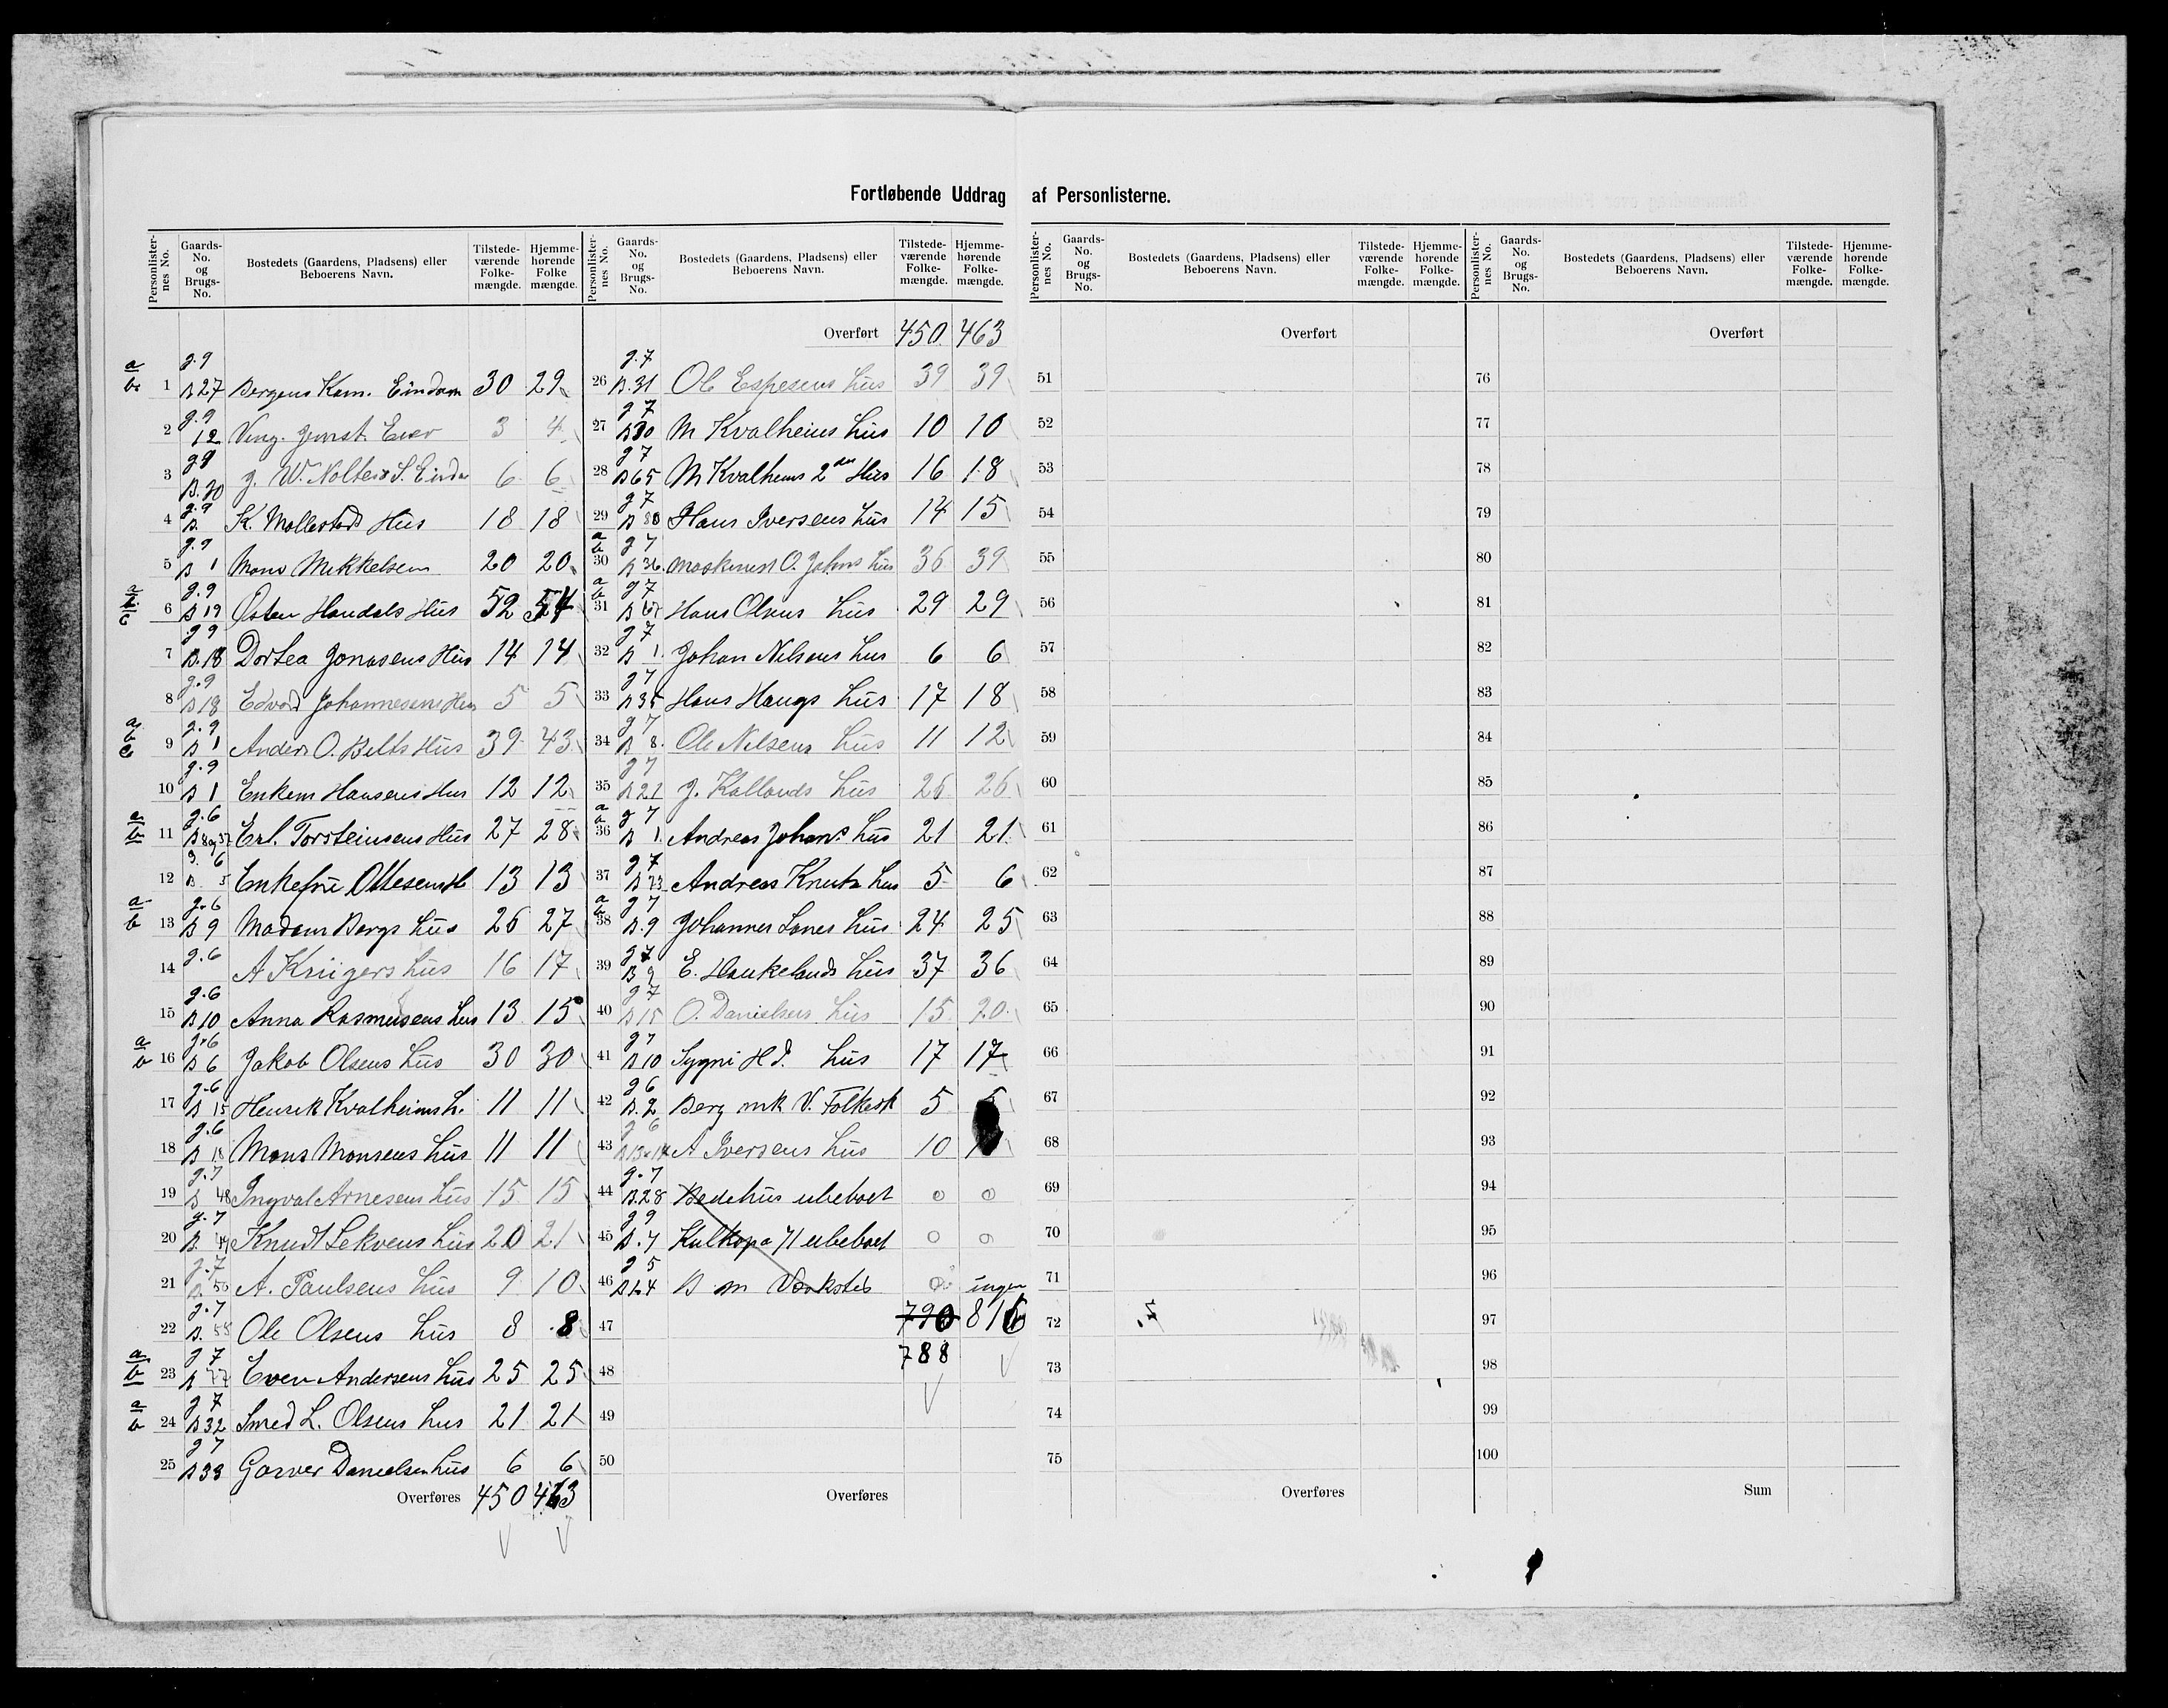 Fortløbende Uddrag af Personlisterne.
Personlisternes No. Gaards-No. og Brugs-No. Bostedets (Gaardens, Pladsens) eller Beboerens Navn. Tilstedeværende Folkemængde. Hjemmehørende Folkemængde.
a b 1 g. 9 B 27 Bergens Kom. Eindom 30 29
2 g. 9 12 3 4
3 g 9 B. 20 6 6
4 g. 9 B. K. Mollestads Hus 18 18
5 g. 9 B 1 Mons Mikkelsen 20 20
a b c 6 g. 9 B 19 Østen Handals Hus 52 54
7 g 9 B. 18 Dortea Jonasens Hus 14 14
8 g. 9 B 18 Edvard Johannesens Hus 5 5
a b c 9 g. 9 B 1 Anders O. Belts Hus 39 43
10 g. 9 B 1 Enkem Hansens Hus 12 12
a b 11 g. 6 Erl. Torsteinsens Hus 27 28
12 g. 6 B 5 Enkefrü Ottesens H 13 13
a b 13 g. 6 B 9 Madam Bergs hüs 26 27
14 g. 6 A Krügers hüs 16 17
15 g. 6 B 10 Anna Rasmusens hus 13 15
a b 16 g. 6 B 6 Jakob Olsens hüs 30 30
17 g. 6 B 15 Henrik Kvalheims h. 11 11
18 g. 6 B 18 Mons Monsens hüs 11 11
19 g. 7 B 48 Ingval Arnesens hüs 15 15
20 g. 7 B. Knudt Lekvens hüs 20 21
21 g. 7 B. 50 A. Paulsens hüs 9 10
22 g. 7 B. 58 Ole Olsens hüs 8 8
a b 23 g 7 B 77 Even Andersens hüs 25 25
a b 24 g 7 B 32 Smed L. Olsens hus 21 21
25 g 7 B 33 Garver Danielsen hüs 6 6
Overføres 450 463
Personlisternes No. Gaards-No. og Brugs-No. Bostedets (Gaardens, Pladsens) eller Beboerens Navn. Tilstedeværende Folkemængde. Hjemmehørende Folkemængde.
Overført 450 463
26 g. 7 B. 31 Ole Espesens hüs 39 39
27 g 7 B 30 M Kvalheins hüs 10 10
28 g 7 B 65 M Kvalheins 2den Hüs 16 18
29 g 7 B 80 Hans Iversens hüs 14 15
a b 30 g 7 B 36 Maskinist O. Johns hüs 36 39
a b 31 g 7 Hans Olsens hüs 29 29
32 g 7 B 1. Johan Nilsens hus 6 6
33 g 7 B 35 Hans Haugs hüs 17 18
34 g 7 B 8. Ole Nilsens hüs 11 12
35 g 7 B 21 J. Kallands hüs 26 26
a a 36 g 7 B 1. Andreas Johans hüs 21 21
37 g 7 B 73 Andreas Knuts hus 5 6
a b 38 g 7 B. 9 Johannes Lones hüs 24 25
39 g 7 B 9 E. Haukelands hüs 37 36
40 g 7 B 15 O. Danielsens hüs 15 20
41 g 7 B 10 Sygni H hüs 17 17
42 g 6 B. 2 Berg mk V. Folkesk 5 5
43 g 6 A Iversens hüs 10
44 g. 7 B. 28 Bedehüs ubeboet 0 0
45 g 9 B. 7 ubeboet 0 0
46 g 5 B 64 B m Værksted 0 ingen
47 790 816
48 788
49
50
Overføres
Personlisternes No. Gaards-No. og Brugs-No. Bostedets (Gaardens, Pladsens) eller Beboerens Navn. Tilstedeværende Folkemængde. Hjemmehørende Folkemængde.
Overført
51
52
53
54
55
56
57
58
59
60
61
62
63
64
65
66
67
68
69
70
71
72
73
74
75
Overføres
Personlisternes No. Gaards-No. og Brugs-No. Bostedets (Gaardens, Pladsens) eller Beboerens Navn. Tilstedeværende Folkemængde. Hjemmehørende Folkemængde.
Overført
76
77
78
79
80
81
82
83
84
85
86
87
88
89
90
91
92
93
94
95
96
97
98
99
100
Sum